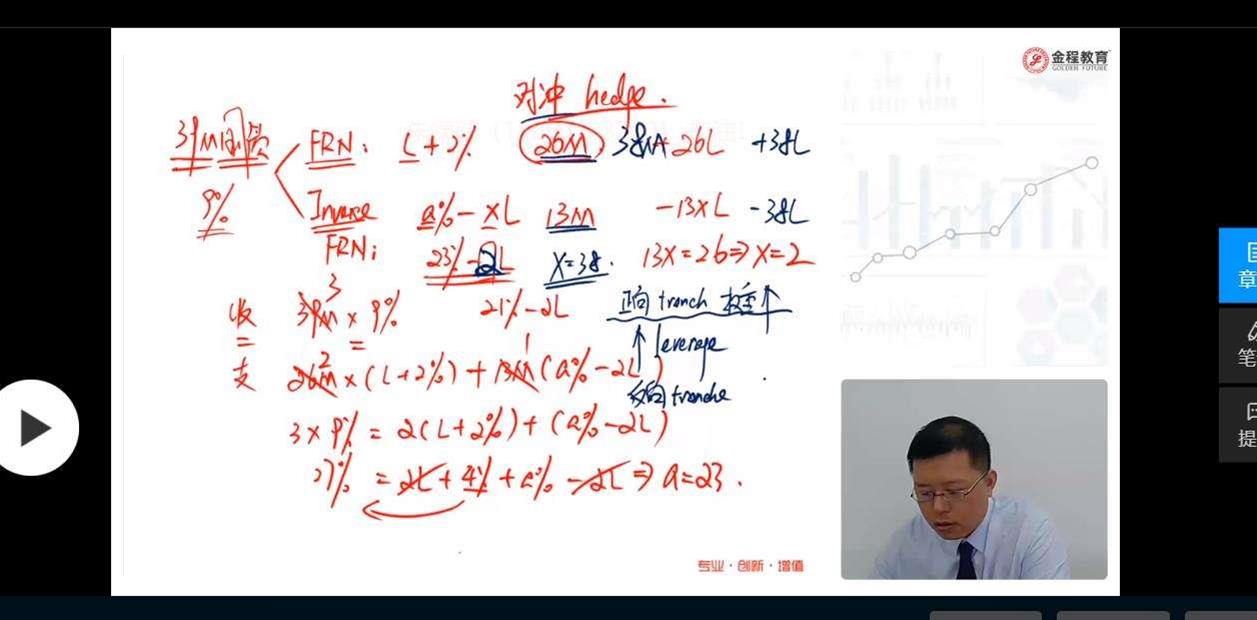 金程教育
GOLDEN FUTURE
对冲 hedge.
39M 固 9%
FRN: L+2% 26M 38M 26L +38L
Inverse FRN: a%-xL 13M -13xL -38L
23%-2L x=38. 13x=26⇒x=2
21%-2L
正向 tranch 权重↑
↑ leverage
反向 tranche
收 = 支
39M 3 × 9%
=
26M 2 ×(L+2%)+13M 1 (a%-2L)
3×9%=2(L+2%)+(a%-2L)
27%=2L+4%+a%-2L⇒a=23.
专业·创新·增值
章
笔
提